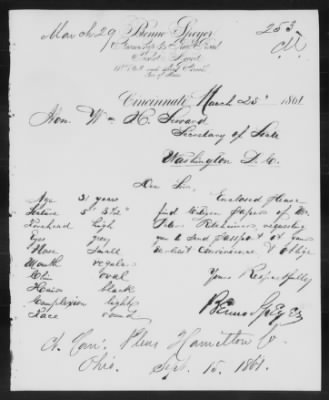 March 29
253
Benno Speyer
Cincinnati March 25th 1861
Hon. Wm H. Seward
Secretary of State
Washington D. C.
Dear Sir,
Age 31 years
Enclosed please
Stature 5ft 3½"
find Citizen Papers of Mr.
Forehead high
requesting
Eyes grey
you to send Passport at your
Nose Small
Convenience & oblige
Mouth regular
Yours Respectfully
Chin oval
Hair black
Benno Speyer
Complexion light
Face round
Ct. Com. Pleas Hamilton Co.
Ohio. Sept. 15. 1861.